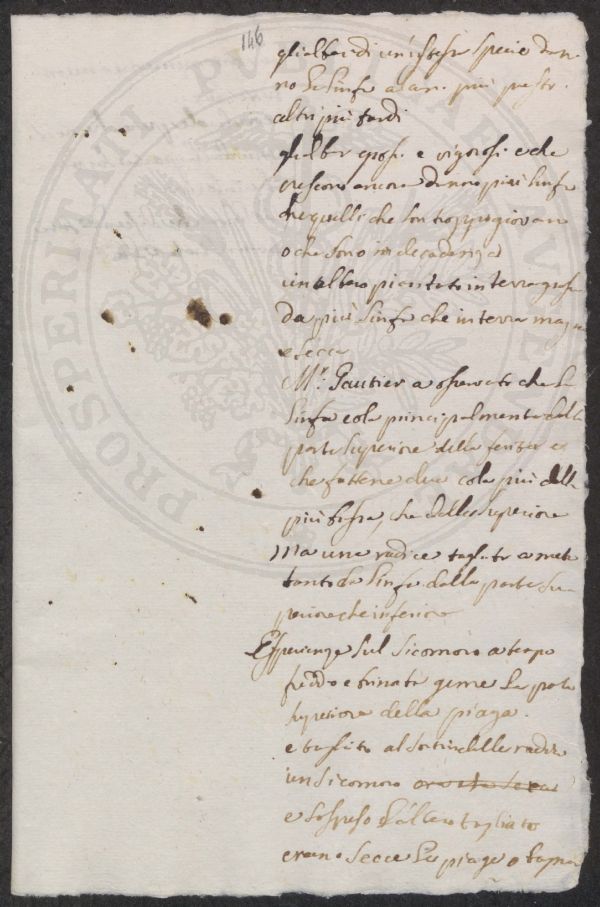 146
gl'alberi di un'istessa specie dan
no la linfa a an. più presto
altri più tardi
gl'alber grossi e vigorosi e che
crescono ancora danno più linfa
che quelli che son troppo giovani
o che sono in decadenza
un albero piantato in terra grassa
da più linfa che in terra magra
e secca
Mr. Gautier a osservato che la
linfa cola principalmente dalla
parte superiore della ferita e
che fattene due cola più dalla
più bassa, che dalla superiore
Ma una radice tagliata a metà
tanto da linfa dalla parte su
periore che inferiore
Esperienze sul sicomoro a tempo
freddo e brinata geme la parte
superiore della piaga.
e tagliato al sortir delle radici
un sicomoro
e sospeso l'albero tagliato
erano secce le piaghe
PROSPERITATI PUBLICAE AUGENDAE